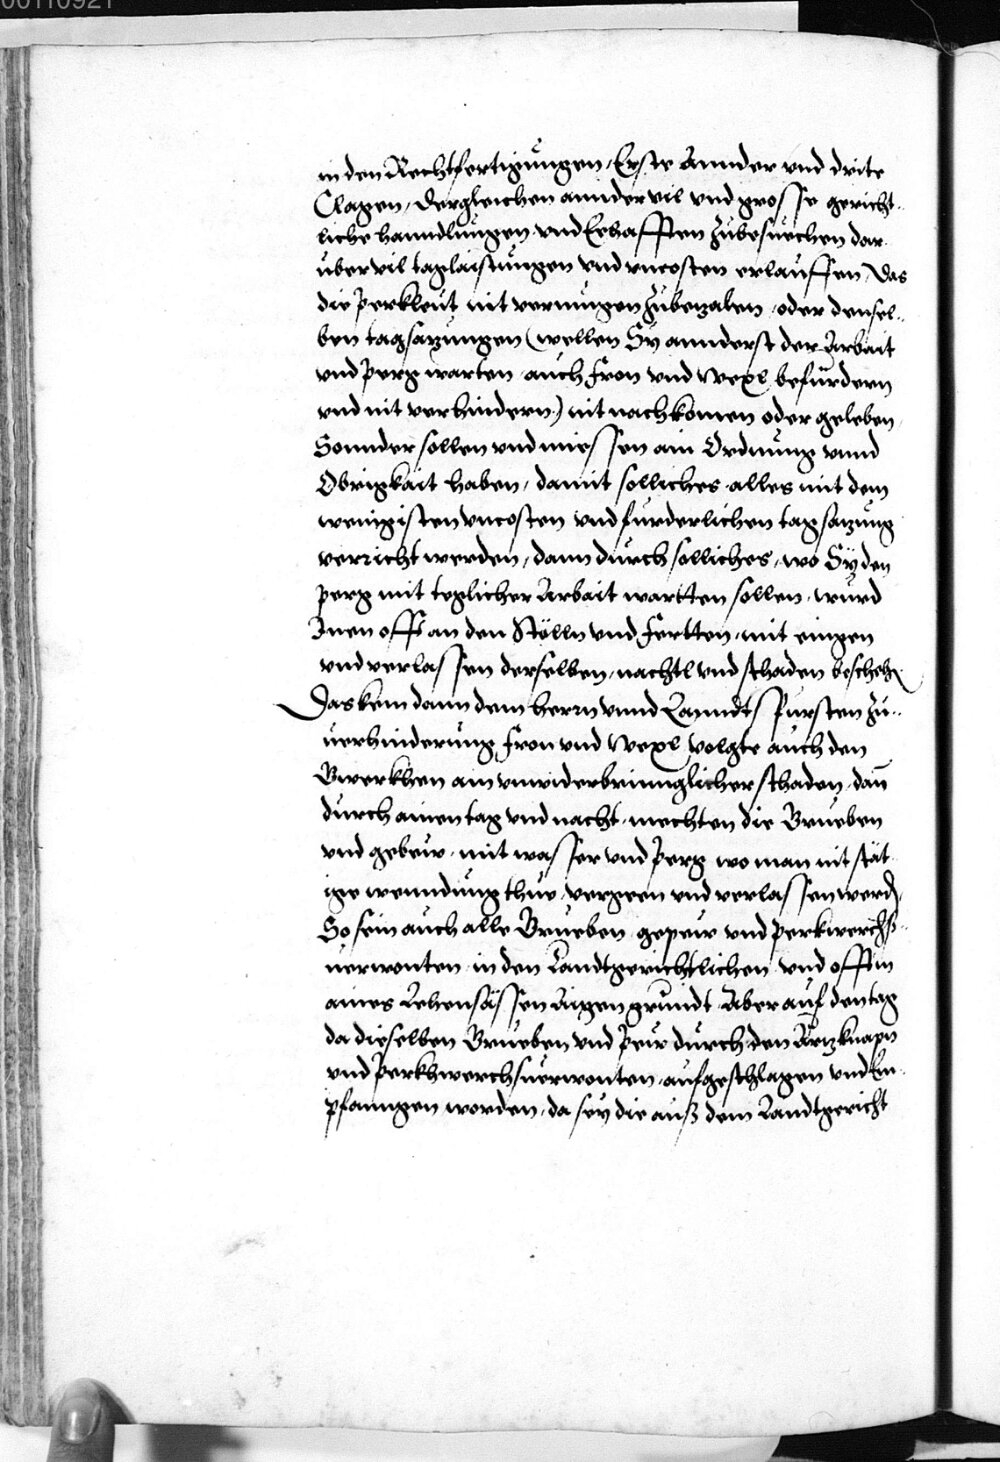 00110921
in den Rechtfertigungen, Erste Annder vnd drite
Clagen, dergleichen annder vil vnd grosse gericht-
liche hanndlungen vnd Eehafften zubesuechen dar-
uber vil taglaistungen vnd vncosten erlauffen, Das
die Perkleut nit vermugen zubezalen, oder densel-
ben tagsazungen (wellen Sy annderst der Arbait
vnd Perg warten, auch Fron vnd Wexl befurdern
vnd nit verhindern) nit nachkomen oder geleben,
Sonnder sollen vnd miessen ain Ordnung vnnd
Obrigkait haben, damit solliches alles mit dem
wenigisten vncosten vnd furderlichen tagsazung
verricht werden, dann durch solliches, wo Sy den
Perg mit teglicher Arbait wartten sollen, wurd
Inen offt an den Stölln vnd Fertten, mit eingen
vnd verlassen derselben, nachtl vnd schaden beschehen
Das kem dann dem herrn vnnd Lanndtsfursten zu-
uerhinderung Fron vnd Wexl, volgte auch den
Gwerkhen ain vnwiderbringlicher schaden, dan
durch ainen tag vnd nacht, mechten die Grueben
vnd gebew, mit wasser vnd Perg wo man nit stät-
ige wenndung thue, vergeen vnd verlassen werden,
So sein auch alle Grueben, gepew vnd Perkwerchs-
uerwonten, in den Landtgerichtlichen vnd offt in
aines Lehensässen Aigen grundt, Aber auf den tag
da dieselben Grueben vnd Pew durch den Ärzknapn
vnd Perkhwerchsuerwonten, aufgeschlagen vnd Em-
pfanngen worden, da sey die auß dem Landtgericht